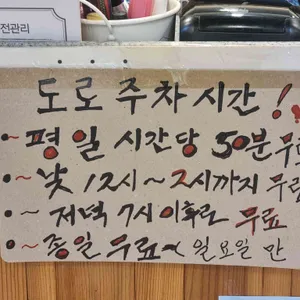 전관리
도로 주차 시간!
~ 평일 시간당 50분 무료
~ 낮 12시 ~ 2시까지 무료
~ 저녁 7시 이후라 무료
~ 종일 무료~ 일요일 만